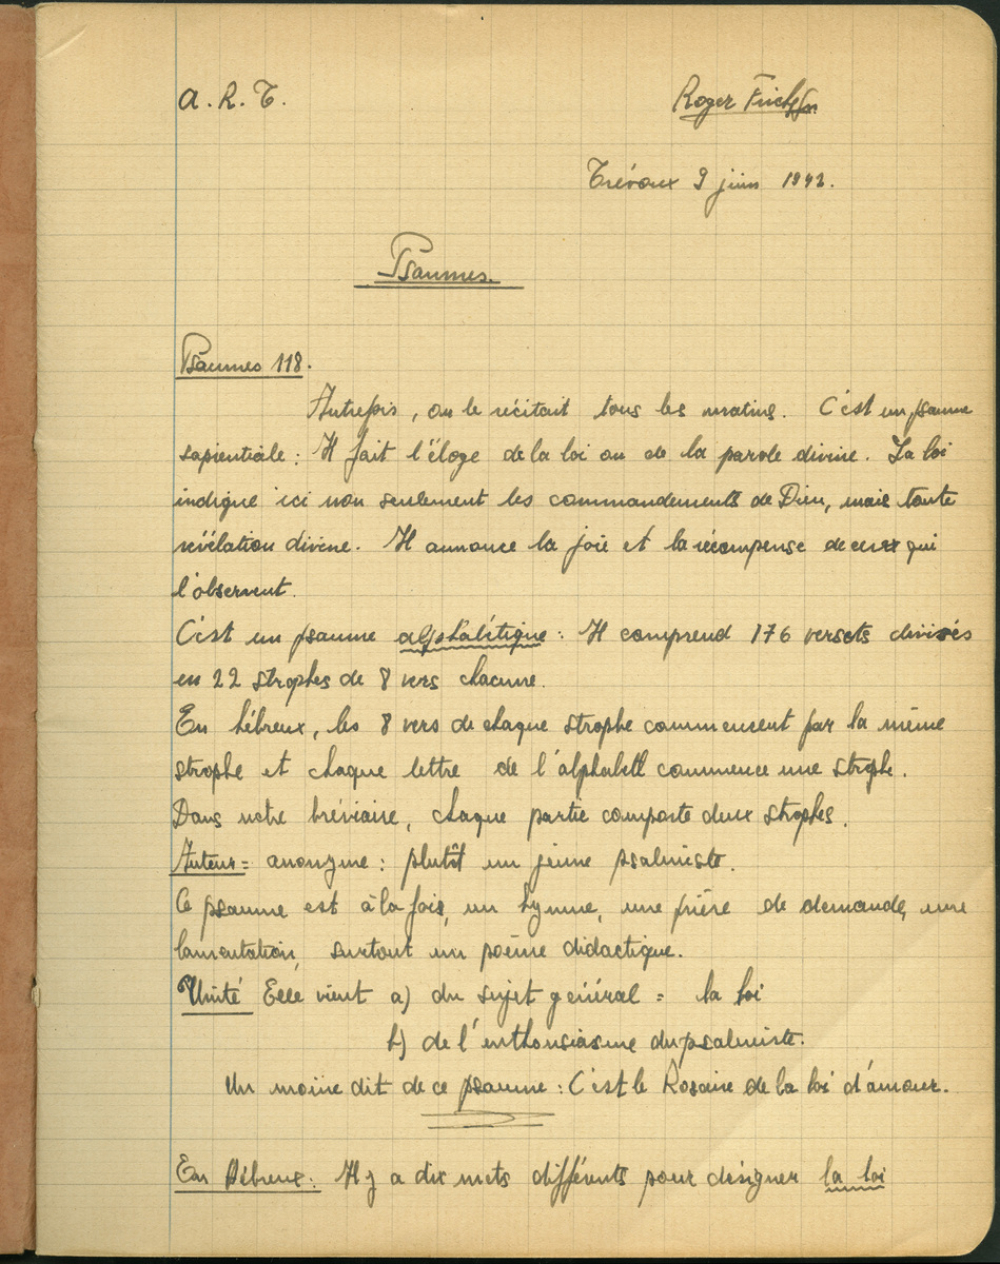 A. R. T.
Roger
Trévoux 9 juin 1942.
Psaumes.
Psaumes 118.
Autrefois, on le récitait tous les matins. C'est un psaume
sapientiale : Il fait l'éloge de la loi ou de la parole divine. La loi
indique ici non seulement les commandements de Dieu, mais toute
révélation divine. Il annonce la joie et la récompense de ceux qui
l'observent.
C'est un psaume alphabétique : Il comprend 176 versets divisés
en 22 strophes de 8 vers chacune.
En hébreux, les 8 vers de chaque strophe commencent par la même
strophe et chaque lettre de l'alphabet commence une strophe.
Dans notre bréviaire, chaque partie comporte deux strophes.
Auteur = anonyme : plutôt un jeune psalmiste.
Ce psaume est à la fois, un hymne, une prière de demande, une
lamentation, surtout un poème didactique.
Unité Elle vient a) du sujet général = la loi
b) de l'enthousiasme du psalmiste.
Un moine dit de ce psaume : C'est le Rosaire de la loi d'amour.
En Hébreux : Il y a dix mots différents pour désigner la loi